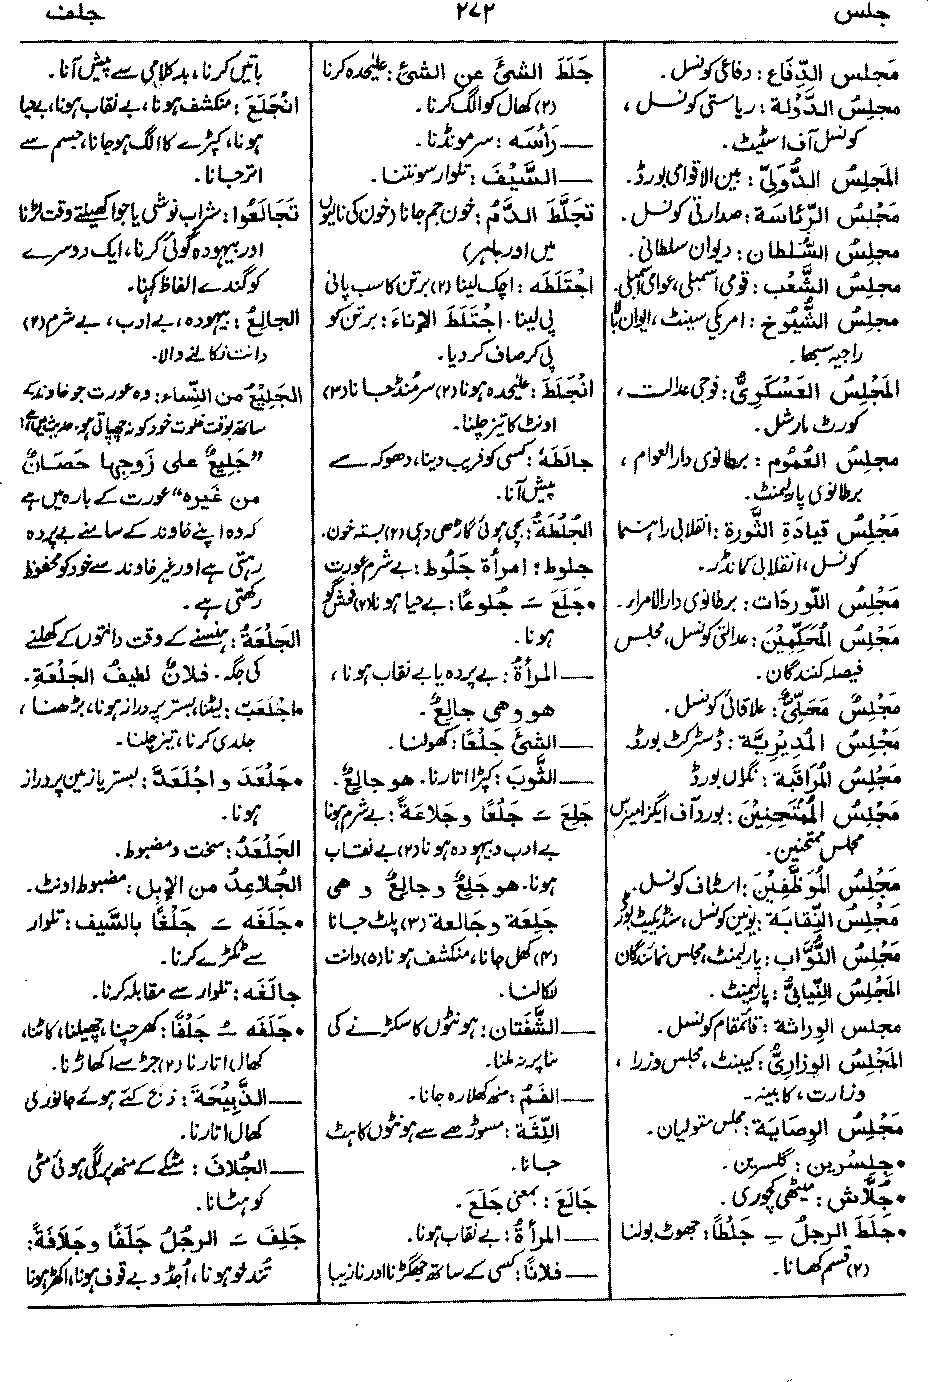 جلس
۲۷۲
جلف
مَجلس الدِّفاع: دفاعی کونسل.
مجلسُ الدَّوْلة: ریاستی کونسل،
کونسل آف اسٹیٹ.
المَجلسُ الدُّوَلِیّ: بین الاقوامی بورڈ.
مَجْلِسُ الرِّئاسَة: صدارتی کونسل.
مَجلِسُ السُّلطان: دیوان سلطانی.
مجلسُ الشَّعْب: قومی اسمبلی، عوامی اسمبلی.
مجلسُ الشُّیُوخ: امریکی سینٹ، ایوان بالا
راجیہ سبھا.
المَجْلِسُ العَسْکَرِیُّ: فوجی عدالت،
کورٹ مارشل.
مجلسُ العُمُوم: برطانوی دارالعوام،
برطانوی پارلیمنٹ.
مَجْلِسُ قیادَةِ الثَّورة: انقلابی راہنما
کونسل، انقلابی کمانڈر.
مَجْلِسُ اللّوردَات: برطانوی دارالامراء.
مَجْلِسُ المُحَکَّمِیْنَ: عدالتی کونسل، مجلس
فیصلہ کنندگان.
مَجْلِسُ مَحَلِّیٌّ: علاقائی کونسل.
مَجْلِسُ المُدِیْرِیَّة: ڈسٹرکٹ بورڈ.
مَجْلِسُ المُرَاقَبَة: نگراں بورڈ
مَجْلِسُ المُمْتَحِنِیْنَ: بورڈ آف ایگزامینرس
مجلس ممتحنین.
مَجْلِسُ المُوَظَّفِیْنَ: اسٹاف کونسل.
مَجْلِسُ النِّقابَة: یونین کونسل، سنڈیکیٹ بورڈ
مَجْلِسُ النُّوَّاب: پارلیمنٹ، مجلس نمائندگان
المَجْلِسُ النِّیابِیُّ: پارلیمنٹ.
مجلس الوِراثة: قائمقام کونسل.
المَجْلِسُ الوِزارِیُّ: کیبنٹ، مجلس وزراء،
وزارت، کابینہ.
مَجْلِسُ الوِصَایَة: مجلس متولیان.
• جِلِسْرِین: گلسرین.
• جُلَّاش: میٹھی کچوری.
• جَلَطَ الرجلُ ـِ جَلْطًا: جھوٹ بولنا
(۲) قسم کھانا.
جَلَطَ الشیْ عن الشیْ: علیحدہ کرنا
(۲) کھال کو الگ کرنا.
— رَأسَه: سر مونڈنا.
— السَّیْفَ: تلوار سونتنا.
تجَلَّطَ الدَّمُ: خون جم جانا (خون کی نالیوں
میں اور باہر)
اجْتَلَطَه: اچک لینا (۲) برتن کا سب پانی
پی لینا. اجْتَلَطَ الإناءَ: برتن کو
پی کر صاف کر دیا.
انْجَلَطَ: علیحدہ ہونا (۲) سر منڈ جانا (۳)
اونٹ کا تیز چلنا.
جالَطَهُ: کسی کو فریب دینا، دھوکہ سے
پیش آنا.
الجُلْطَةُ: بچی ہوئی گاڑھی دہی (۲) بستہ خون.
جلوط: امرأة جَلُوط: بے شرم عورت
• جَلَعَ ـَ جُلوعًا: بے حیا ہونا (۲) فحش گو
ہونا.
— المرأةُ: بے پردہ یا بے نقاب ہونا،
هو وهی جالِعٌ.
— الشیَْ جَلْعًا: کھولنا.
— الثَّوبَ: کپڑا اتارنا. هو جالِعٌ.
جَلِعَ ـَ جَلَعًا وجَلاعَةً: بے شرم ہونا
بے ادب و بیہودہ ہونا (۲) بے نقاب
ہونا. هو جَلِعٌ وجالِعٌ و هی
جَلِعَة وجَالِعة (۳) پلٹ جانا
(۴) کھل جانا، منکشف ہونا (۵) دانت
نکالنا.
— الشَّفَتانِ: ہونٹوں کا سکڑنے کی
بنا پر نہ ملنا.
— الفَمُ: منھ کھلا رہ جانا.
اللِّثَة: مسوڑھے سے ہونٹوں کا ہٹ
جانا.
جَالَعَ: بمعنی جَلَعَ.
— المرأةُ: بے نقاب ہونا.
— فلانًا: کسی کے ساتھ جھگڑنا اور نازیبا
باتیں کرنا، بدکلامی سے پیش آنا.
انْجَلَعَ: منکشف ہونا، بے نقاب ہونا، بے حیا
ہونا، کپڑے کا الگ ہو جانا، جسم سے
اتر جانا.
تَجَالَعُوا: شراب نوشی یا جوا کھیلتے وقت لڑنا
اور بیہودہ گوئی کرنا، ایک دوسرے
کو گندے الفاظ کہنا.
الجالِعُ: بیہودہ، بے ادب، بے شرم (۲)
دانت نکالنے والا.
الجَلِیْعُ من النِّساء: وہ عورت جو خاوند کے
ساتھ بوقت خلوت خود کو نہ چھپاتی ہو؛ حدیث میں ہے:
”جَلِیعٌ علی زَوجِها حَصَانٌ
من غَیرِه“ عورت کے بارہ میں ہے
کہ وہ اپنے خاوند کے سامنے بے پردہ
رہتی ہے اور غیر خاوند سے خود کو محفوظ
رکھتی ہے.
الجَلَعَةُ: ہنسنے کے وقت دانتوں کے کھلنے
کی جگہ. فلانٌ لطیفُ الجَلَعَةِ.
• اجْلَعَبَّ: لیٹنا، بستر پر دراز ہونا، بڑھنا،
جلدی کرنا، تیز چلنا.
• جَلْعَدَ و اجْلَعَدَّ: بستر یا زمین پر دراز
ہونا.
الجَلْعَدُ: سخت و مضبوط.
الجُلاعِدُ من الإبِل: مضبوط اونٹ.
• جَلَغَه ـَ جَلْغًا بالسَّیف: تلوار
سے ٹکڑے کرنا.
جالَغَه: تلوار سے مقابلہ کرنا.
• جَلَفَه ـُ جَلْفًا: کھرچنا، چھیلنا، کاٹنا،
کھال اتارنا (۲) جڑ سے اکھاڑنا.
— الذَّبِیْحَة: ذبح کئے ہوئے جانور کی
کھال اتارنا.
— الجُلافَ: مٹکے کے منھ پر لگی ہوئی مٹی
کو ہٹانا.
جَلِفَ ـَ الرجُلُ جَلَفًا وجَلَافَةً:
تندخو ہونا، اُجڈ و بے وقوف ہونا، اکھڑ ہونا